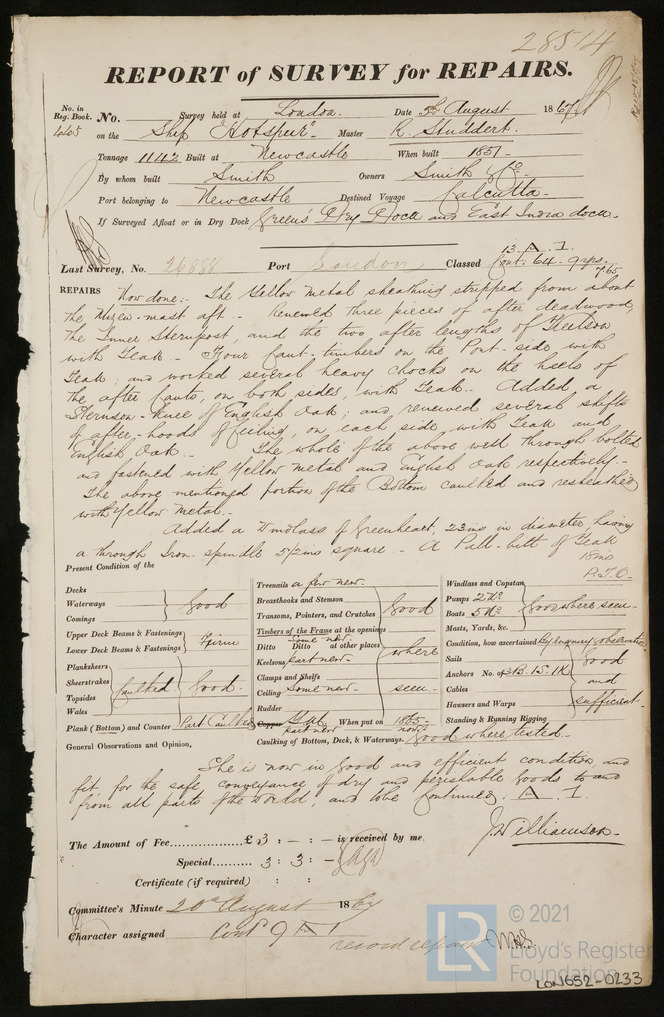 28514
REPORT of SURVEY for REPAIRS.
No. in Reg. Book. No. Survey held at London. Date 5th August 1867
445 on the Ship "Hotspur" Master R. Studdert.
Tonnage 1142 Built at Newcastle When built 1851-
By whom built Smith Owners Smith & Co.
Port belonging to Newcastle Destined Voyage Calcutta-
If Surveyed Afloat or in Dry Dock Green's Dry Dock and East India dock.
13. A. 1.
Last Survey, No. 26888 Port London Classed Cont. 64. 9 yrs.
7.65
REPAIRS Now done:- The Yellow Metal sheathing stripped from about
the Mizen-mast aft.- Renewed three pieces of after deadwood,
the Inner Sternpost, and the two after lengths of Keelson
with Teak.- Four Cant-timbers on the Port-side with
Teak; and worked several heavy chocks on the heels of
the after Cants, on both sides, with Teak.- Added a
Sternson-Knee of English Oak; and renewed several shifts
of after-hoods of Ceiling, on each side, with Teak and
English Oak.- The whole of the above well through bolted
and fastened with Yellow Metal and English Oak respectively.-
The above mentioned portion of the Bottom caulked and resheathed
with Yellow Metal.-
Added a Windlass of Greenheart, 23ins in diameter, having
a through Iron-spindle 5½ins square.- A Pall-bitt of Teak
18ins
P.T.O.
Present Condition of the
Decks
Waterways
Comings
Good
Upper Deck Beams & Fastenings
Lower Deck Beams & Fastenings
Firm
Planksheers
Sheerstrakes
Topsides
Wales
Caulked Good.
Plank (Bottom) and Counter Part Caulked
Treenails a few new.
Breasthooks and Stemson
Transoms, Pointers, and Crutches
Good
Timbers of the Frame at the openings
Some new.
Ditto Ditto at other places
Keelsons part new
where
Clamps and Shelfs
Ceiling Some new.
Rudder
seen.
Copper Y.M. When put on 1865-
part new now.
Caulking of Bottom, Deck, & Waterways. Good where tested.
Windlass and Capstan
Pumps 2 No.
Boats 5 No.
Masts, Yards, &c.
Good where seen.
Condition, how ascertained By enquiry & observation
Sails
Anchors No. of 3B. 1S. 1K
Cables
Hawsers and Warps
Standing & Running Rigging
Good
and
sufficient.
General Observations and Opinion,
She is now in good and efficient condition, and
fit for the safe conveyance of dry and perishable goods to and
from all parts of the World; and to be Continued. A. 1
J. Williamson.
The Amount of Fee.................£3 : - : - is received by me.
Special......... 3 : 3 : -
Certificate (if required) : :
Committee's Minute 20th August 1867
Character assigned Cont 9 A 1
record repairs
© 2021
LR
Lloyd's Register
Foundation
LON652-0233